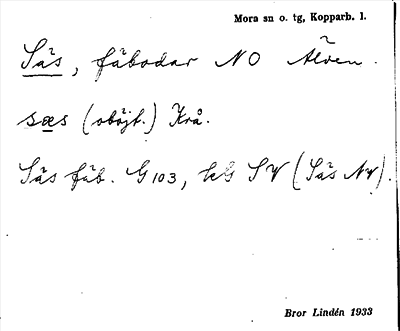 Mora sn o. tg, Kopparb. l.
Säs, fäbodar NO Älven.
sæs (oböjt.) Krå.
Säs fäb. G 103, kG SV (Säs NV).
Bror Lindén 1933